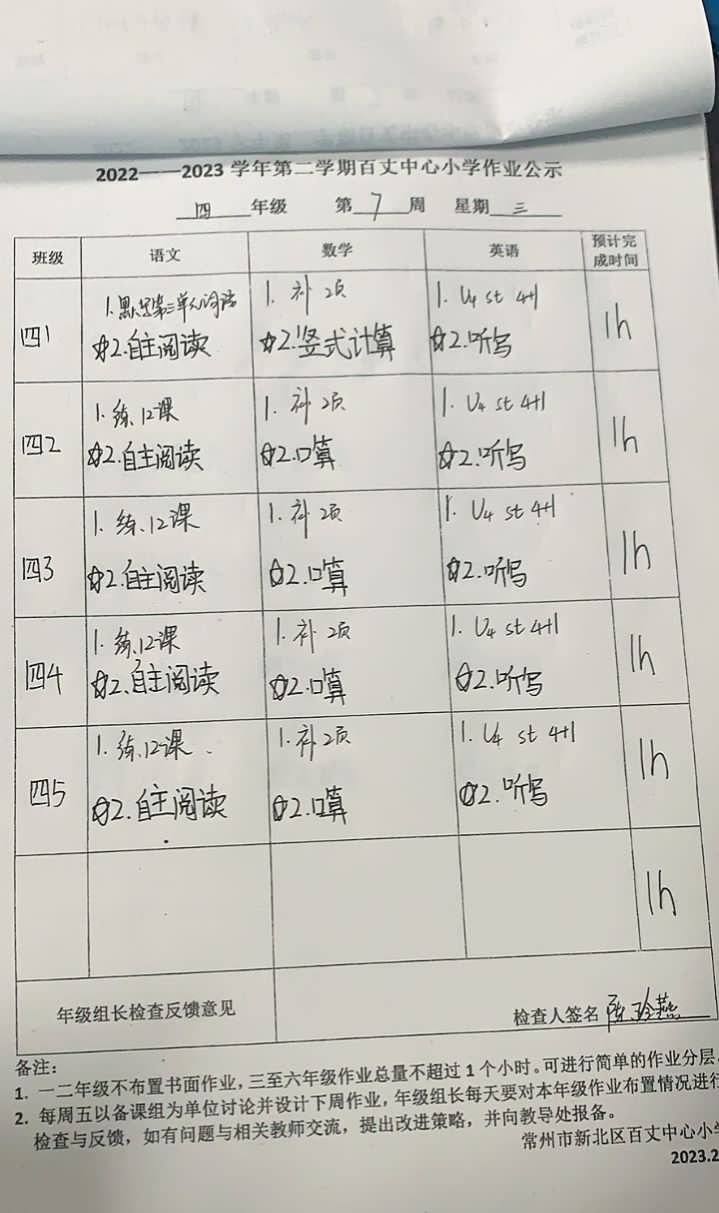 2022——2023 学年第二学期百丈中心小学作业公示
四 年级 第 7 周 星期 三
班级 语文 数学 英语 预计完成时间
四1 1.默写第三单元词语 1. 补 2页 1. U4 st 4+1 1h
☆2.自主阅读 ☆2.竖式计算 ☆2.听写
四2 1.练.12课 1. 补 2页 1. U4 st 4+1 1h
☆2.自主阅读 ☆2.口算 ☆2.听写
四3 1.练.12课 1. 补 2页 1. U4 st 4+1 1h
☆2.自主阅读 ☆2.口算 ☆2.听写
四4 1.练.12课 1. 补 2页 1. U4 st 4+1 1h
☆2.自主阅读 ☆2.口算 ☆2.听写
四5 1.练.12课. 1. 补 2页 1. U4 st 4+1 1h
☆2.自主阅读 ☆2.口算 ☆2.听写
1h
年级组长检查反馈意见 检查人签名 陈玲燕
备注:
1. 一二年级不布置书面作业，三至六年级作业总量不超过 1 个小时。可进行简单的作业分层。
2. 每周五以备课组为单位讨论并设计下周作业，年级组长每天要对本年级作业布置情况进行
检查与反馈，如有问题与相关教师交流，提出改进策略，并向教导处报备。
常州市新北区百丈中心小学
2023.2